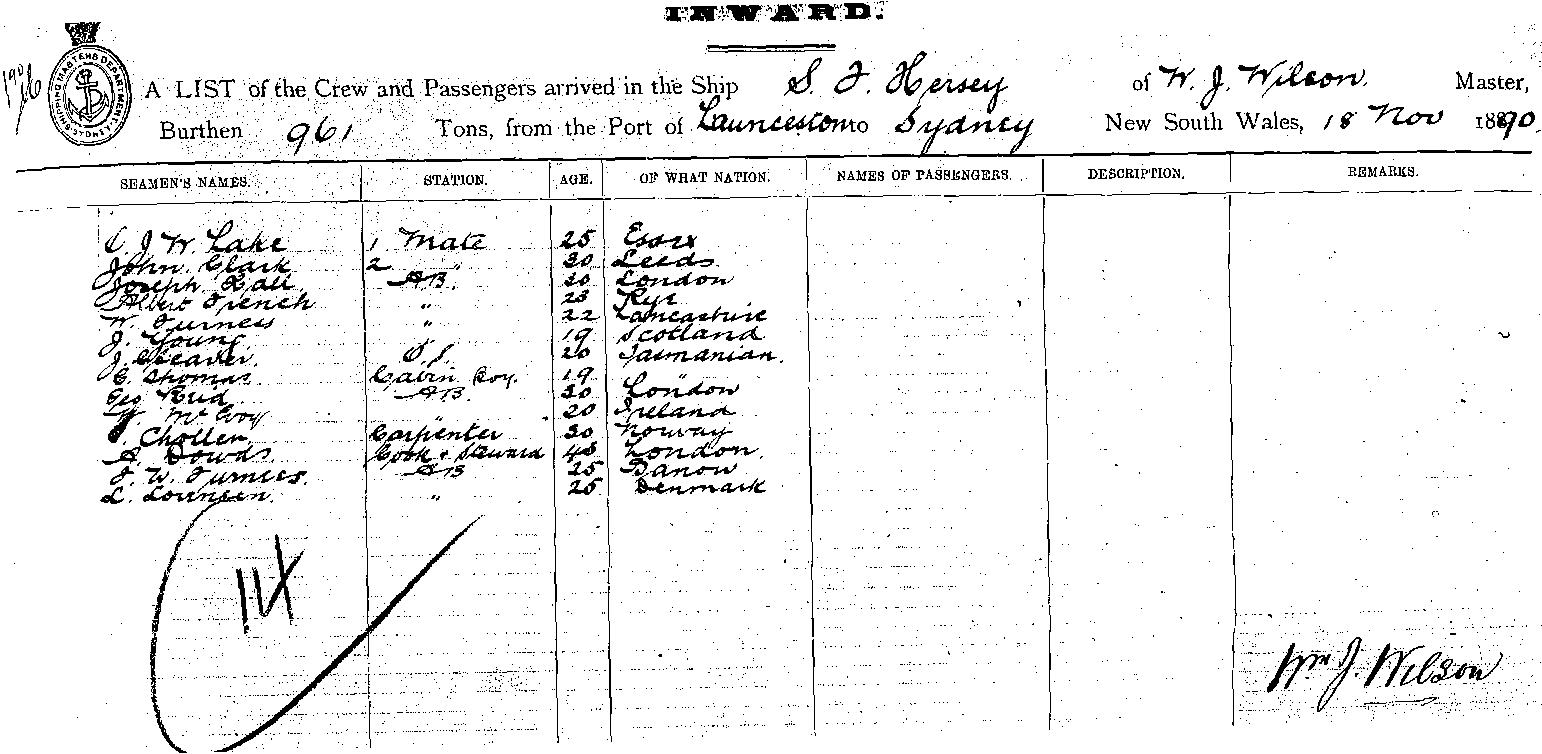 INWARD.
SHIPPING MASTERS DEPARTMENT SYDNEY
A LIST of the Crew and Passengers arrived in the Ship S. F. Hersey of W. J. Wilson. Master,
Burthen 961 Tons, from the Port of Launceston to Sydney New South Wales, 18 Nov 1890.
SEAMEN'S NAMES. STATION. AGE. OF WHAT NATION. NAMES OF PASSENGERS. DESCRIPTION. REMARKS.
C. J W. Lake 1 Mate 25 Essex
John Clark 2 " 30 Leeds
Joseph Hall AB 30 London
Albert French " 23 Rye
W. Furness " 22 Lancashire
J. Young 19 Scotland
J. Cleaver. O.S. 20 Tasmanian.
E. Thomas Cabin Boy. 19 "
Geo Reid AB 30 London
W. McEvoy " 20 Ireland
Chollen Carpenter 30 Norway
A. Dowds Cook & Steward 48 London.
F. W. Furness. AB 25
L. Lorensen. " 25 Denmark
Wm J. Wilson